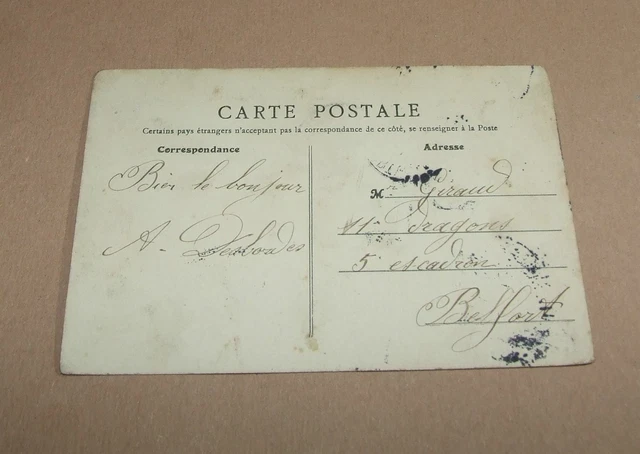 CARTE POSTALE
Certains pays étrangers n'acceptant pas la correspondance de ce côté, se renseigner à la Poste
Correspondance
Bien le bonjour
A. Desbordes
Adresse
M. Giraud
11e Dragons
5 escadron
Belfort